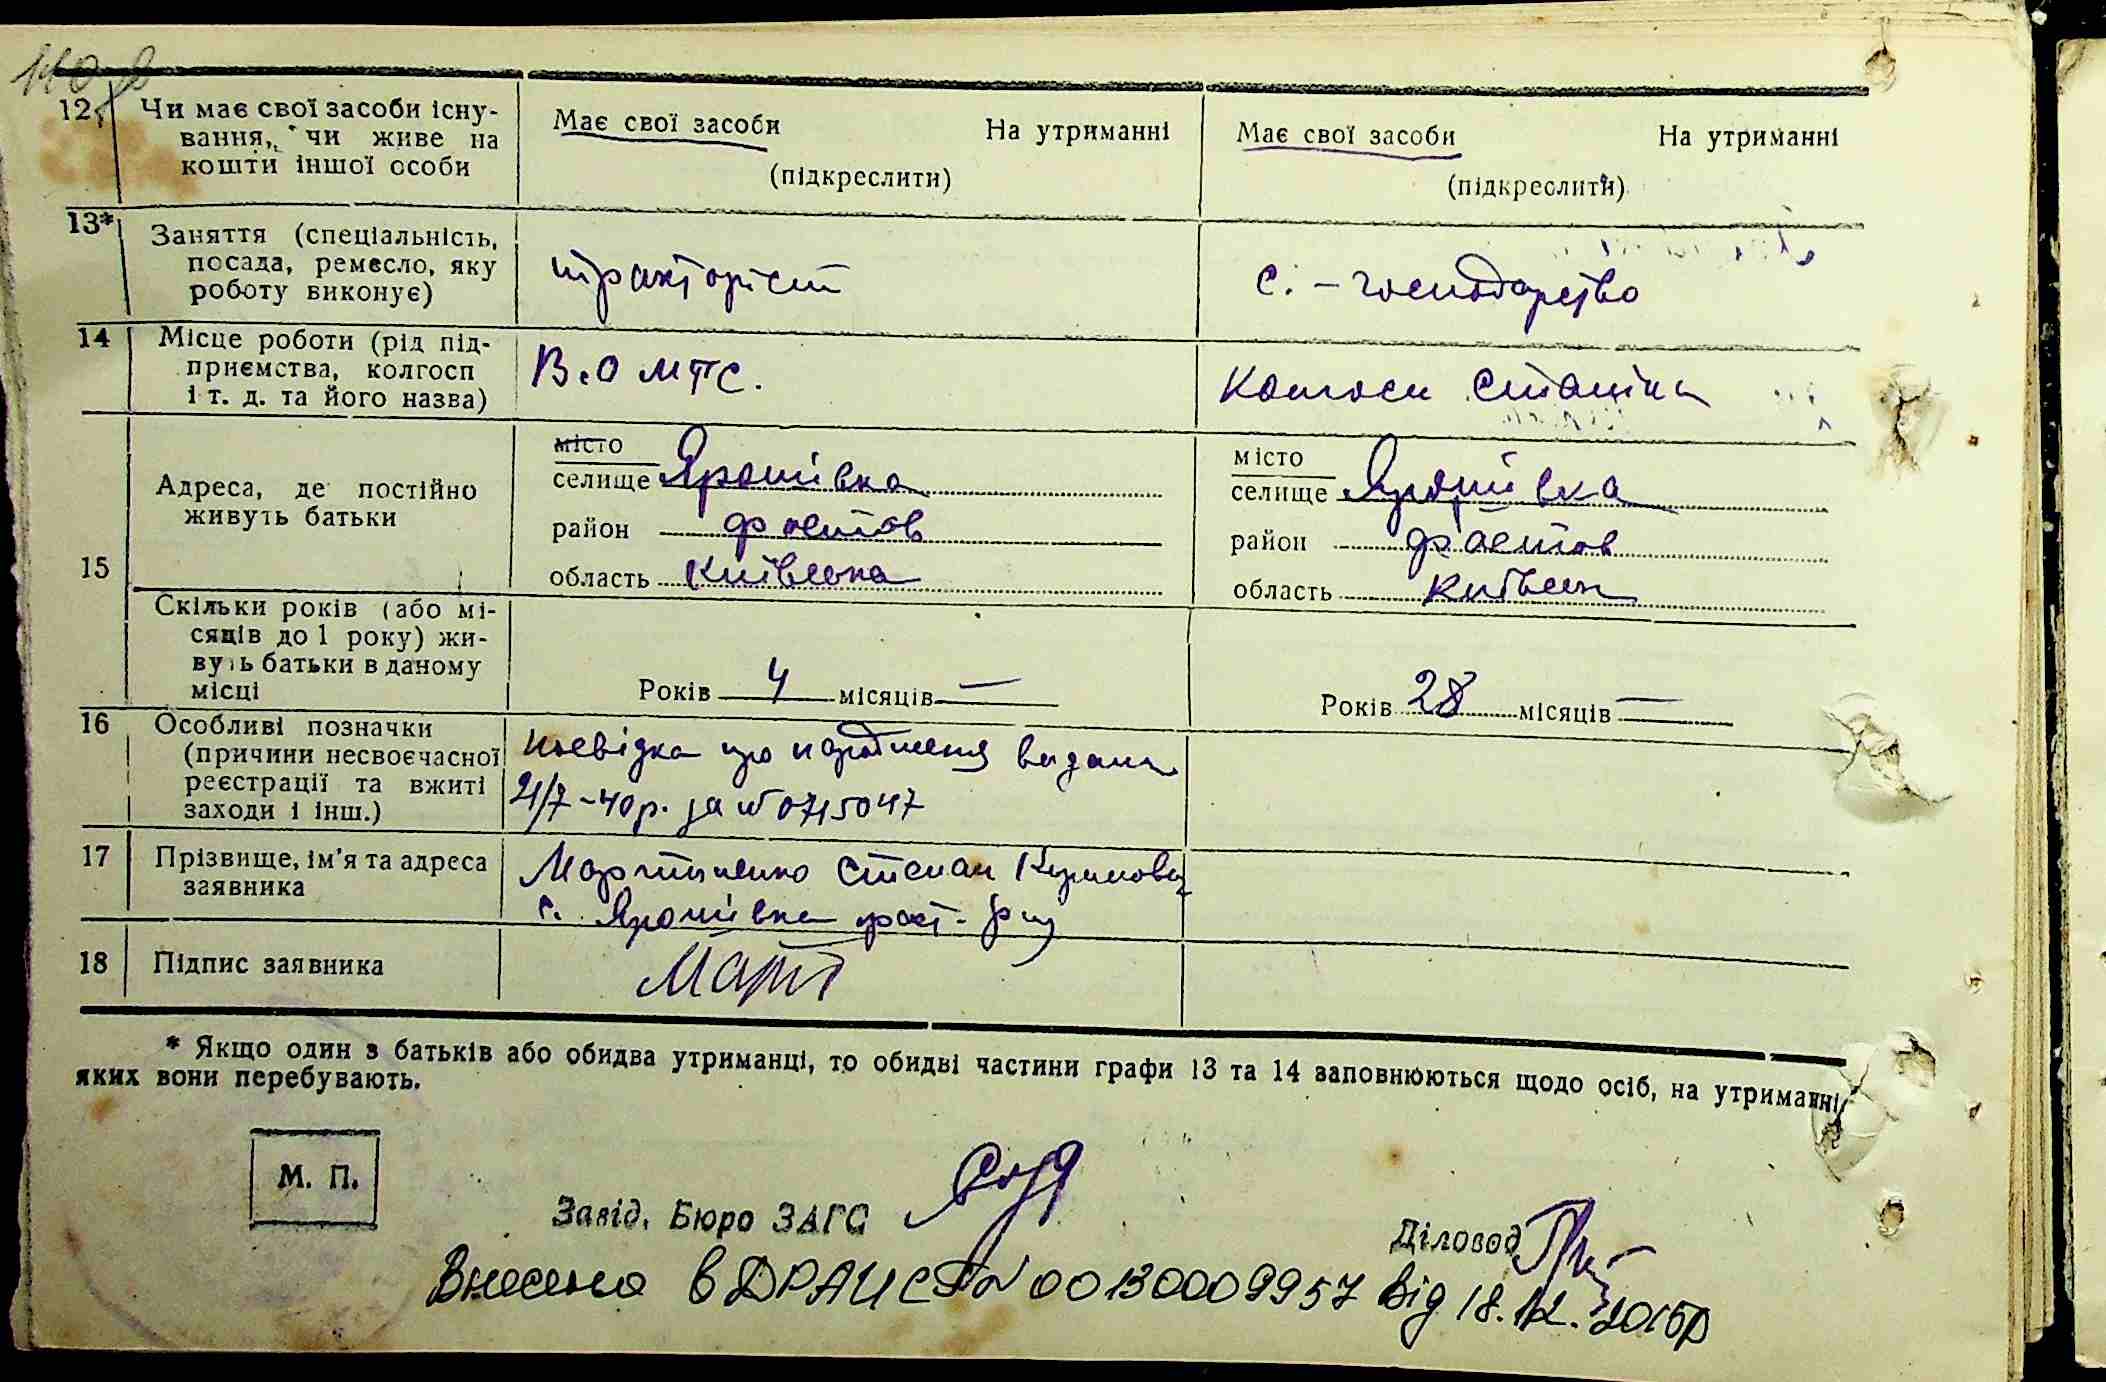 12. Чи має свої засоби існу- Має свої засоби На утриманні Має свої засоби На утриманні
вання, чи живе на
кошти іншої особи (підкреслити) (підкреслити)
13* Заняття (спеціальність,
посада, ремесло, яку тракторіст С. – господарство
роботу виконує)
14 Місце роботи (рід під-
приємства, колгосп В.О МТС. Колгосп Сталіна
і т. д. та його назва)
місто місто
Адреса, де постійно селище Ярошівка селище Ярошівка
живуть батьки район фастов район фастов
15 область Київська область
Скільки років (або мі-
сяців до 1 року) жи-
вуть батьки в даному
місці Років 4 місяців — Років 28 місяців —
16 Особливі позначки
(причини несвоєчасної посвідка про народження видана
реєстрації та вжиті 21/7 -40р. за № 0715047
заходи і інш.)
17 Прізвище, ім'я та адреса Мартиненко Степан
заявника с. Ярошівка фаст. р-ну
18 Підпис заявника Март
* Якщо один з батьків або обидва утриманці, то обидві частини графи 13 та 14 заповнюються щодо осіб, на утриманні
яких вони перебувають.
М. П.
Завід. Бюро ЗАГС Діловод
Внесено в ДРАЦСГ № 00130009957 від 18.12.2015р